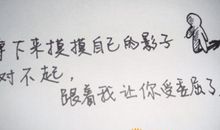 下来摸摸自己的影子
对不起，
跟着我让你受委屈了